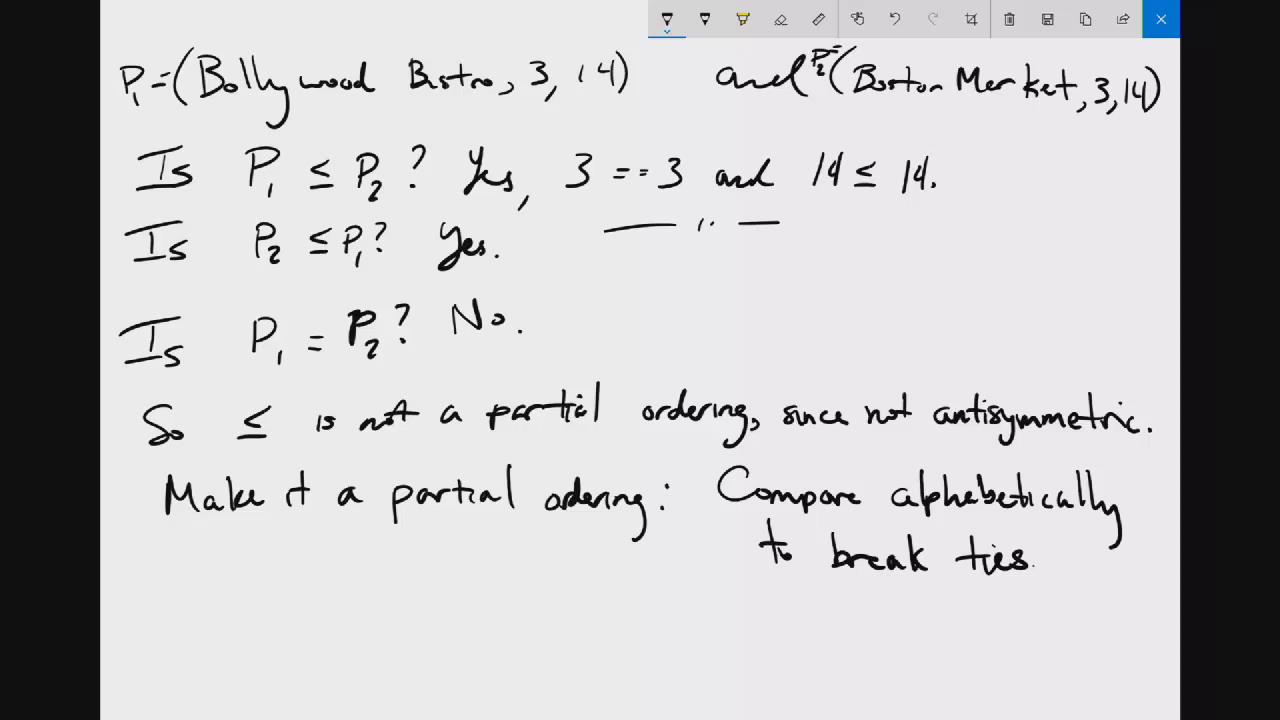 P₁=(Bollywood Bistro, 3, 14) and P₂=(Boston Market, 3, 14)
Is P₁ ≤ P₂? Yes, 3 == 3 and 14 ≤ 14.
Is P₂ ≤ P₁? Yes. — " —
Is P₁ = P₂? No.
So ≤ is not a partial ordering, since not antisymmetric.
Make it a partial ordering: Compare alphabetically
to break ties.